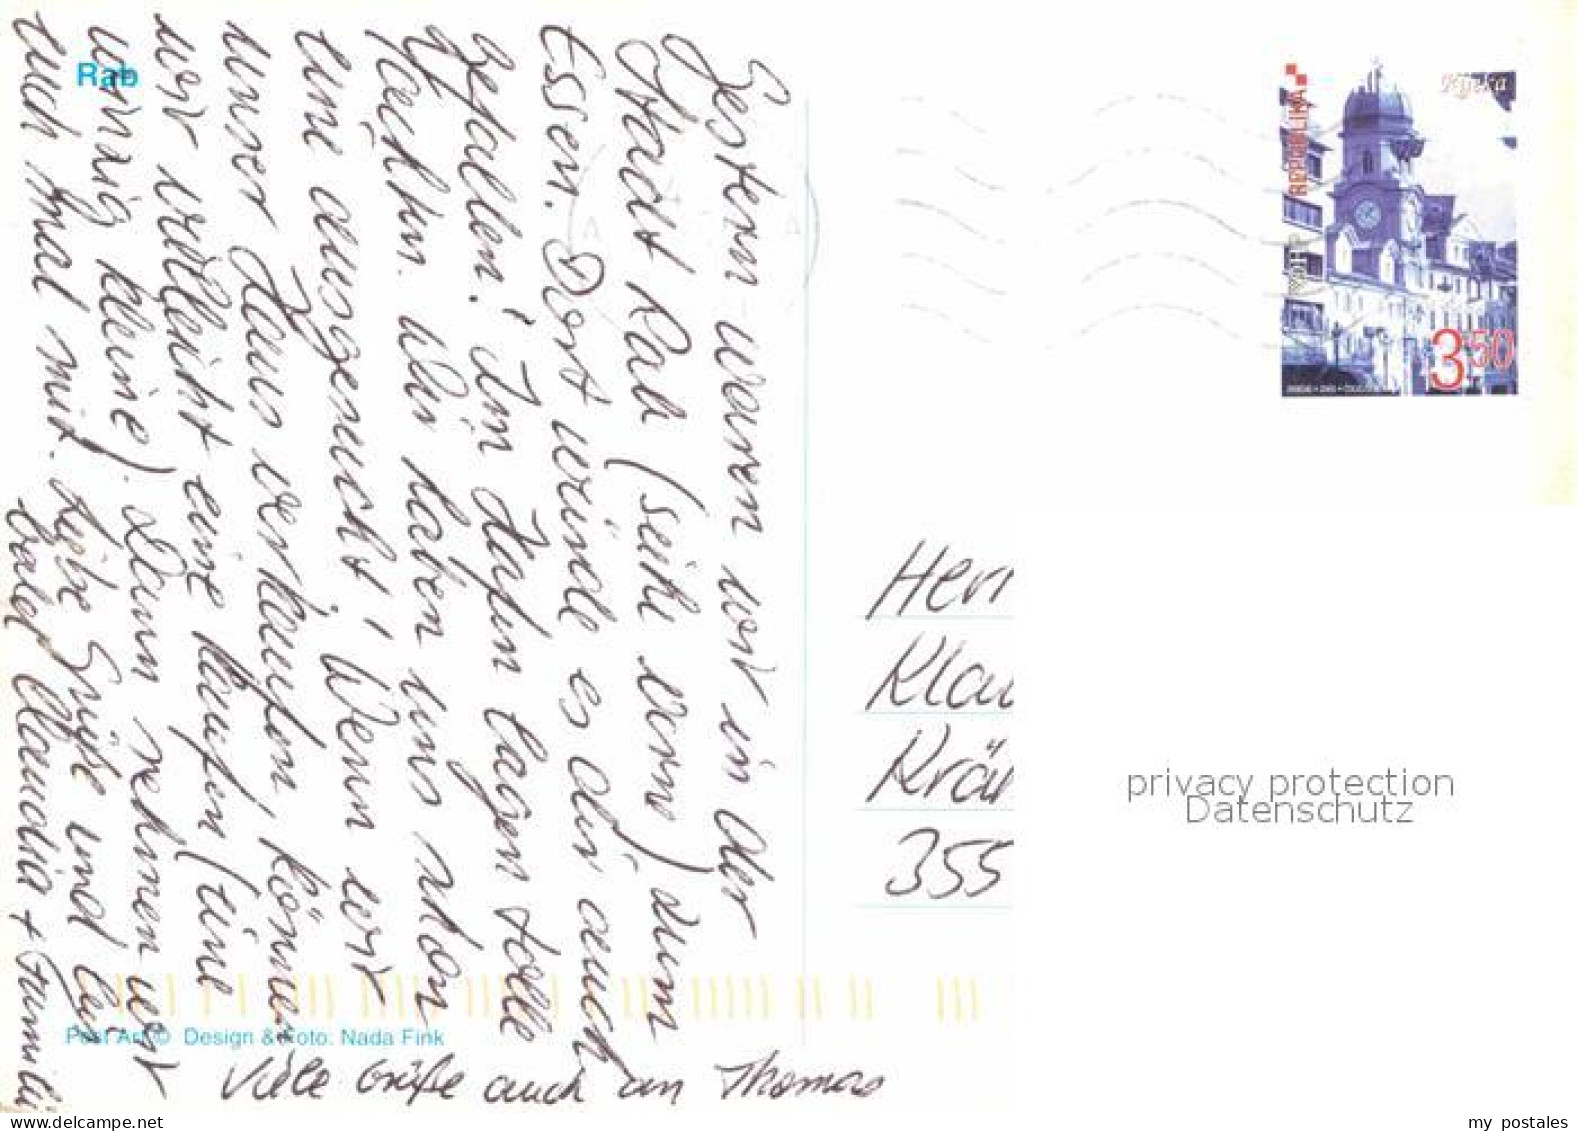 Rab
Gestern waren wir in der
Stadt Rab (siehe vorne) zum
Essen. Dort würde es dir auch
gefallen! Im Hafen lagen tolle
Yachten. Wir haben uns schon
eine ausgesucht! Wenn wir
unser Haus verkaufen, können
wir vielleicht eine kaufen (eine
winzig kleine). Dann nehmen wir
euch mal mit. Liebe Grüße und bis
bald Claudia + Familie
Viele Grüße auch an Thomas
Post Art © Design & Foto: Nada Fink
REPUBLIKA
Rijeka
3,50
Herr
Klau
Krä
355
privacy protection
Datenschutz
my postales